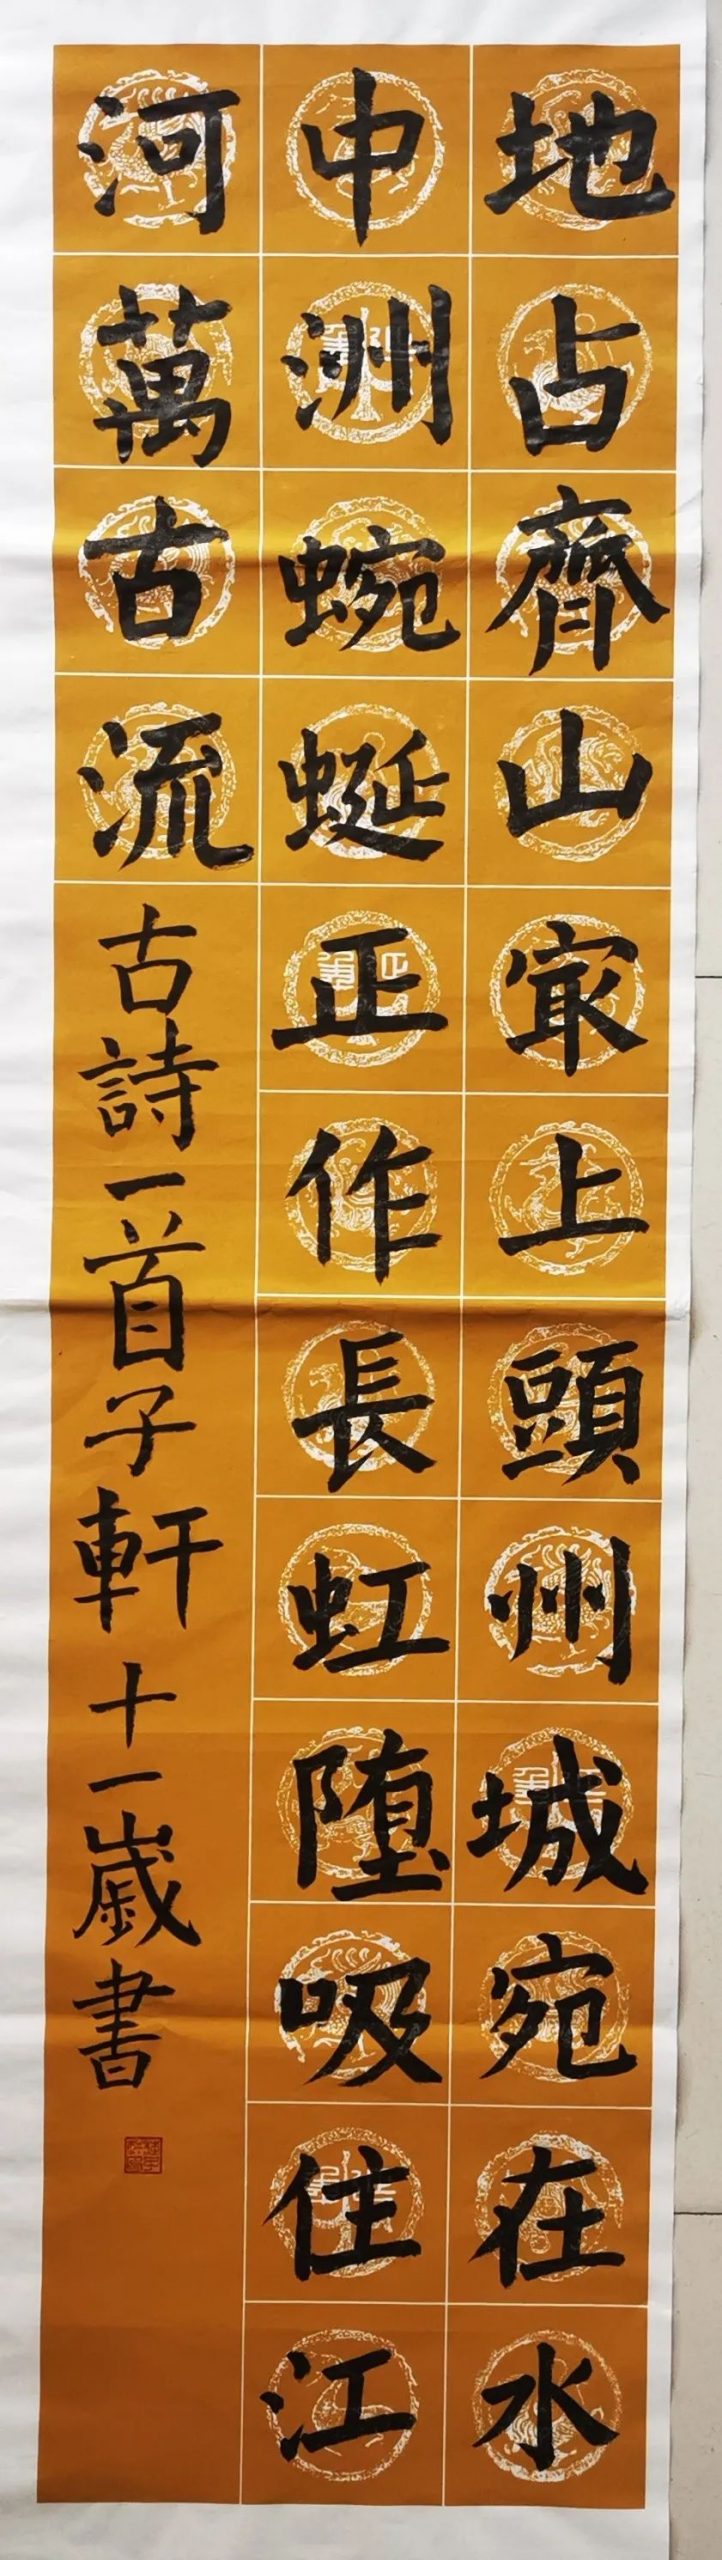 地占齊山冣上頭州城宛在水
中洲蜿蜒正作長虹堕吸住江
河萬古流古詩一首子軒十一歲書